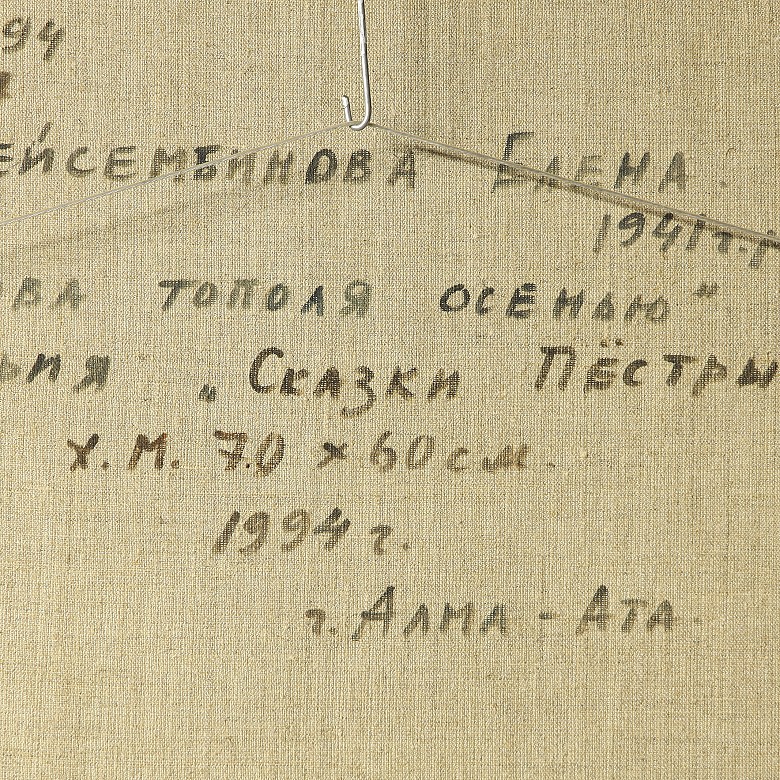 94
ЕЙСЕМБИНОВА ЕЛЕНА.
1941г.р
ОВА ТОПОЛЯ ОСЕНЬЮ"
ЬИЯ „СКАЗКИ ПЁСТРЫ
Х.М. 70 x 60 см.
1994 г.
г. АЛМА - АТА.